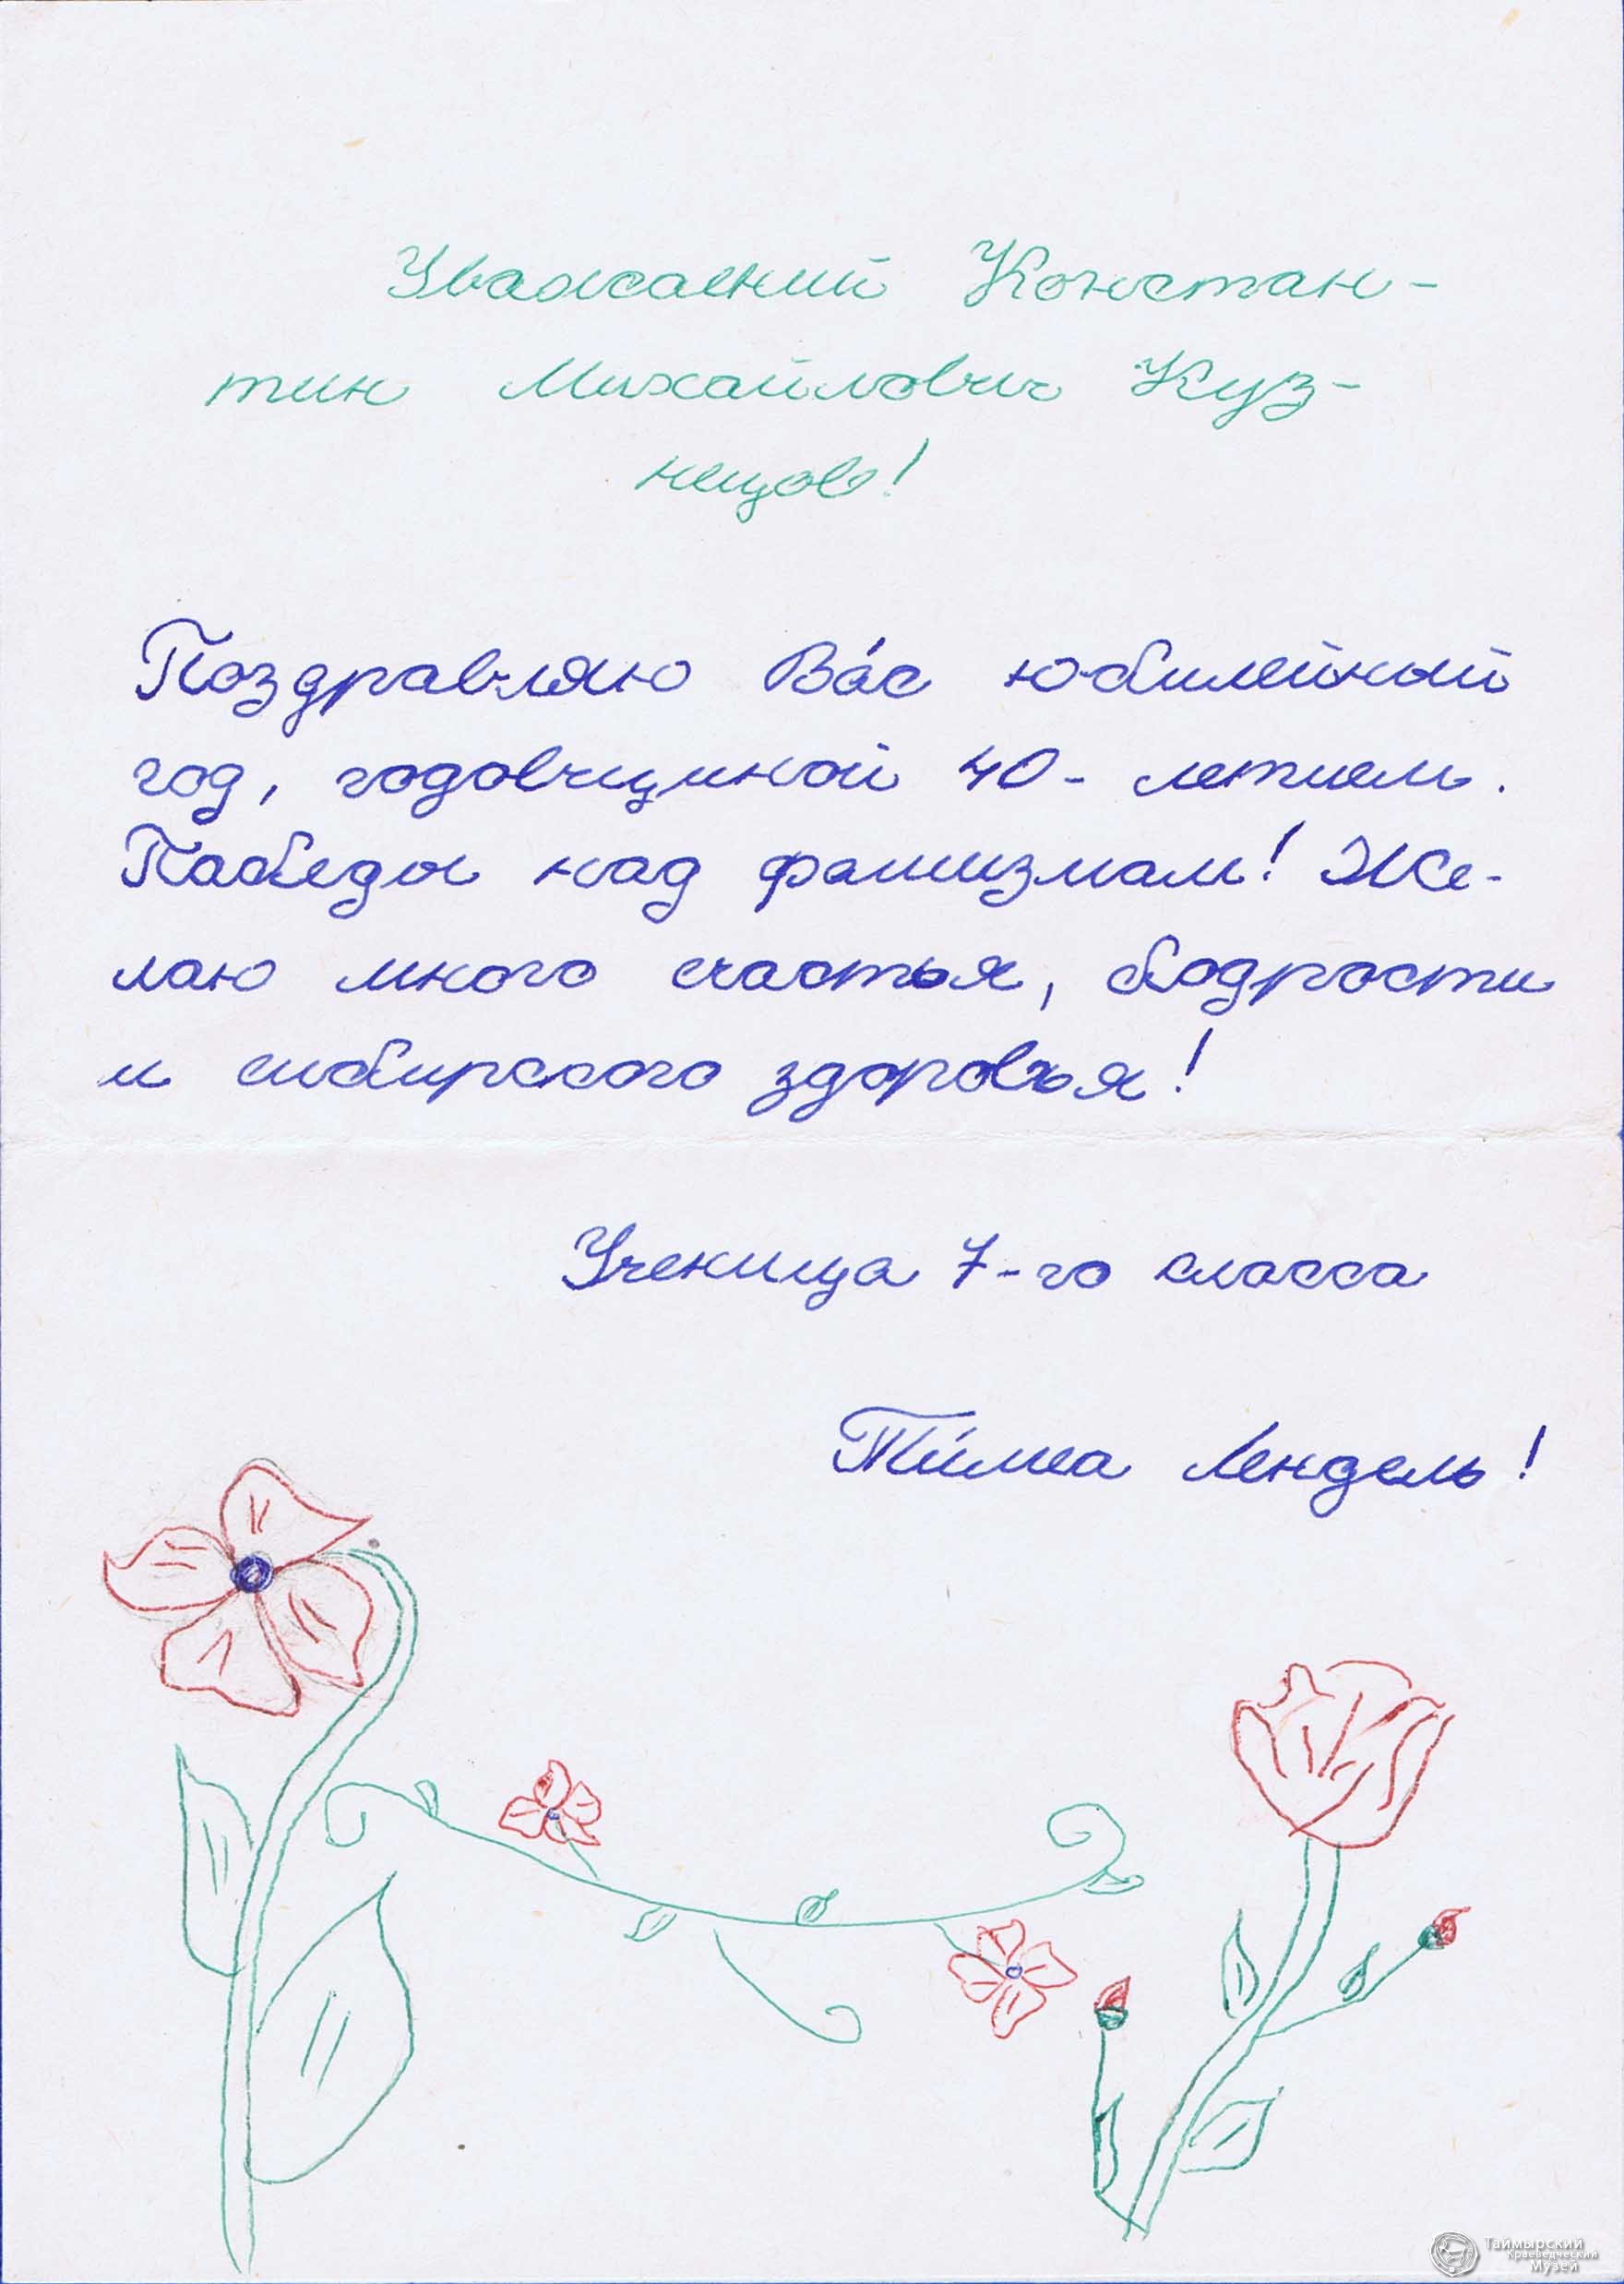 Уважаемый Констан-
тин Михайлович Куз-
нецов!
Поздравляю Ва́с юбилейный
год, годовщиной 40-летием.
Пабеды над фашизмам! Же-
лаю много счастья, бодрости
и сибирского здоровья!
Ученица 7-го класса
Ти́меа Лендель!
Таймырский
Краеведческий
Музей